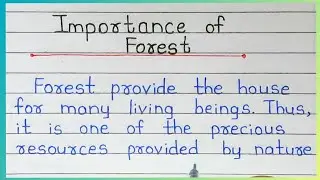 Importance of
Forest
Forest provide the house
for many living beings. Thus,
it is one of the precious
resources provided by nature